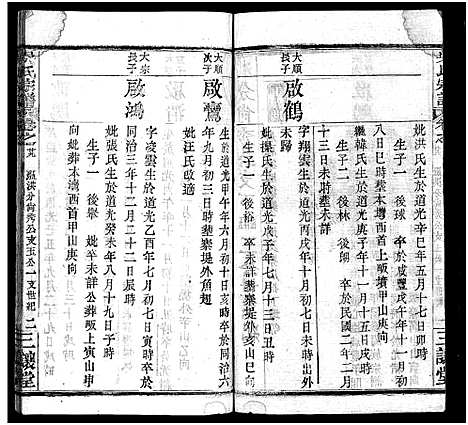 妣洪氏生於道光辛巳年五月十七日卯時
生子一 後球 卒於咸豐戊午年十一月初
八日巳時塟本塆西首上畈墳甲山庚向
繼韓氏生於道光庚子年十一月十五戌時
生子二 後林 後朗 卒於民國二年二月
十三日未時塟未詳
大順長子 啟鶴
字翔雲生於道光戊子年十月初七日未時出外
未歸
妣操氏生於道光戊子年七月十三日丑時
生子一 後裕 卒未詳塟寨堤外亥山巳向
大順次子 啟鸞
生於道光甲午年六月初十日亥時卒於同治六
年九月初三日時塟寨堤外角起
妣汪氏改適
大宗長子 啟鴻
字凌雲生於道光乙酉年七月初七日寅時卒於
同治三年十二月二十二日辰時
妣張氏生於道光癸未年八月十九日子時
生子一 後舉 妣卒未詳公葬畈上寅山申
向妣葬本塆西首甲山庚向
三讓堂